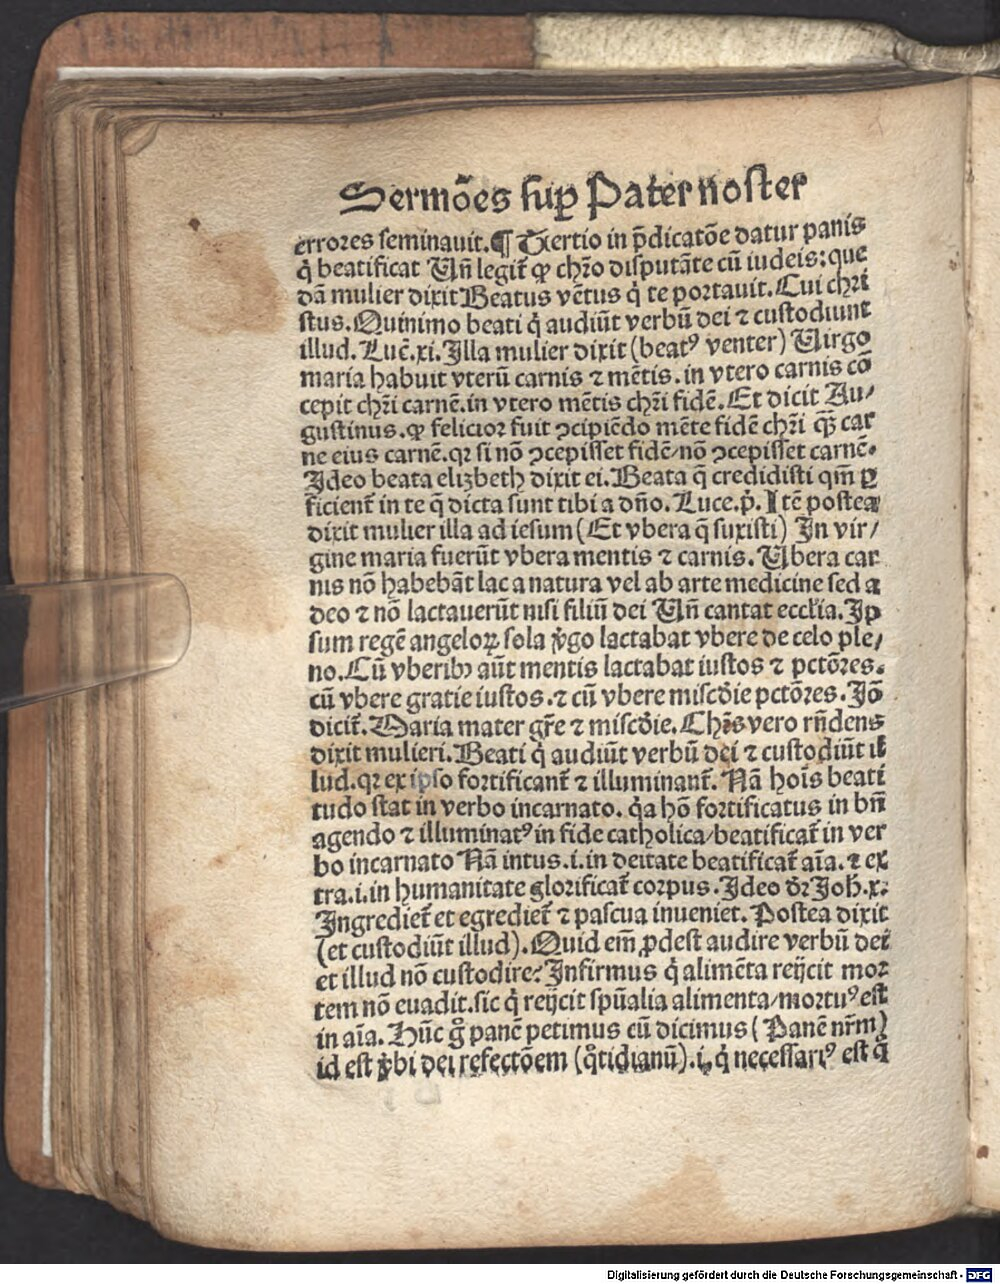 Sermões suꝑ Pater noster
errores seminauit. ¶ Tertio in p̄dicatōe datur panis
q̇ beatificat Vn̄ legit̄ ꝙ chr̄o disputāte cū iudeis: que
dā mulier dixit Beatus vētus q̇ te portauit. Cui chri
stus. Quinimo beati q̇ audiūt verbū dei ⁊ custodiunt
illud. Luc̄. xi. Illa mulier dixit (beatꝰ venter) Virgo
maria habuit vterū carnis ⁊ mētis. in vtero carnis cō
cepit chr̄i carnē. in vtero mētis chr̄i fidē. Et dicit Au⸗
gustinus. ꝙ felicior fuit ↄcipiēdo mēte fidē chr̄i qꝫ̄ car
ne eius carnē. qꝛ si nō ↄcepisset fidē/ nō ↄcepisset carnē.
Ideo beata elizbeth dixit ei. Beata q̄ credidisti qm̄ ꝑ
ficient̄ in te q̄ dicta sunt tibi a dn̄o. Luce. p̄. Itē postea
dixit mulier illa ad iesum (Et vbera q̄ suxisti) In vir⸗
gine maria fuerūt vbera mentis ⁊ carnis. Vbera car
nis nō habebāt lac a natura vel ab arte medicine sed a
deo ⁊ nō lactauerūt nisi filiū dei Vn̄ cantat eccl̄ia. Ip
sum regē angeloꝝ sola v̇go lactabat vbere de celo ple⸗
no. Cū vberibꝫ aūt mentis lactabat iustos ⁊ pctōres.
cū vbere gratie iustos. ⁊ cū vbere miscd̄ie pctōres. Iō
dicit̄. Maria mater gr̄e ⁊ miscd̄ie. Chr̄s vero rn̄dens
dixit mulieri. Beati q̇ audiūt verbū dei ⁊ custodiūt il
lud. qꝛ ex ipso fortificant̄ ⁊ illuminant̄. Nā hoīs beati
tudo stat in verbo incarnato. q̇a hō fortificatus in bn̄
agendo ⁊ illuminatꝰ in fide catholica/ beatificat̄ in ver
bo incarnato Nā intus .i. in deitate beatificat̄ aīa. ⁊ ex
tra .i. in humanitate glorificat̄ corpus. Ideo dr̄ Joh̄. x.
Ingrediet̄ et egrediet̄ ⁊ pascua inueniet. Postea dixit
(et custodiūt illud). Quid em̄ ꝓdest audire verbū dei
et illud nō custodire? Infirmus q̇ alimēta reijcit mor
tem nō euadit. sic q̇ reijcit spūalia alimenta/ mortuꝰ est
in aīa. Hūc gͦ panē petimus cū dicimus (Panē nr̄m)
id est v̇bi dei refectōem (qͦtidianū) .i. q̇ necessariꝰ est q̇